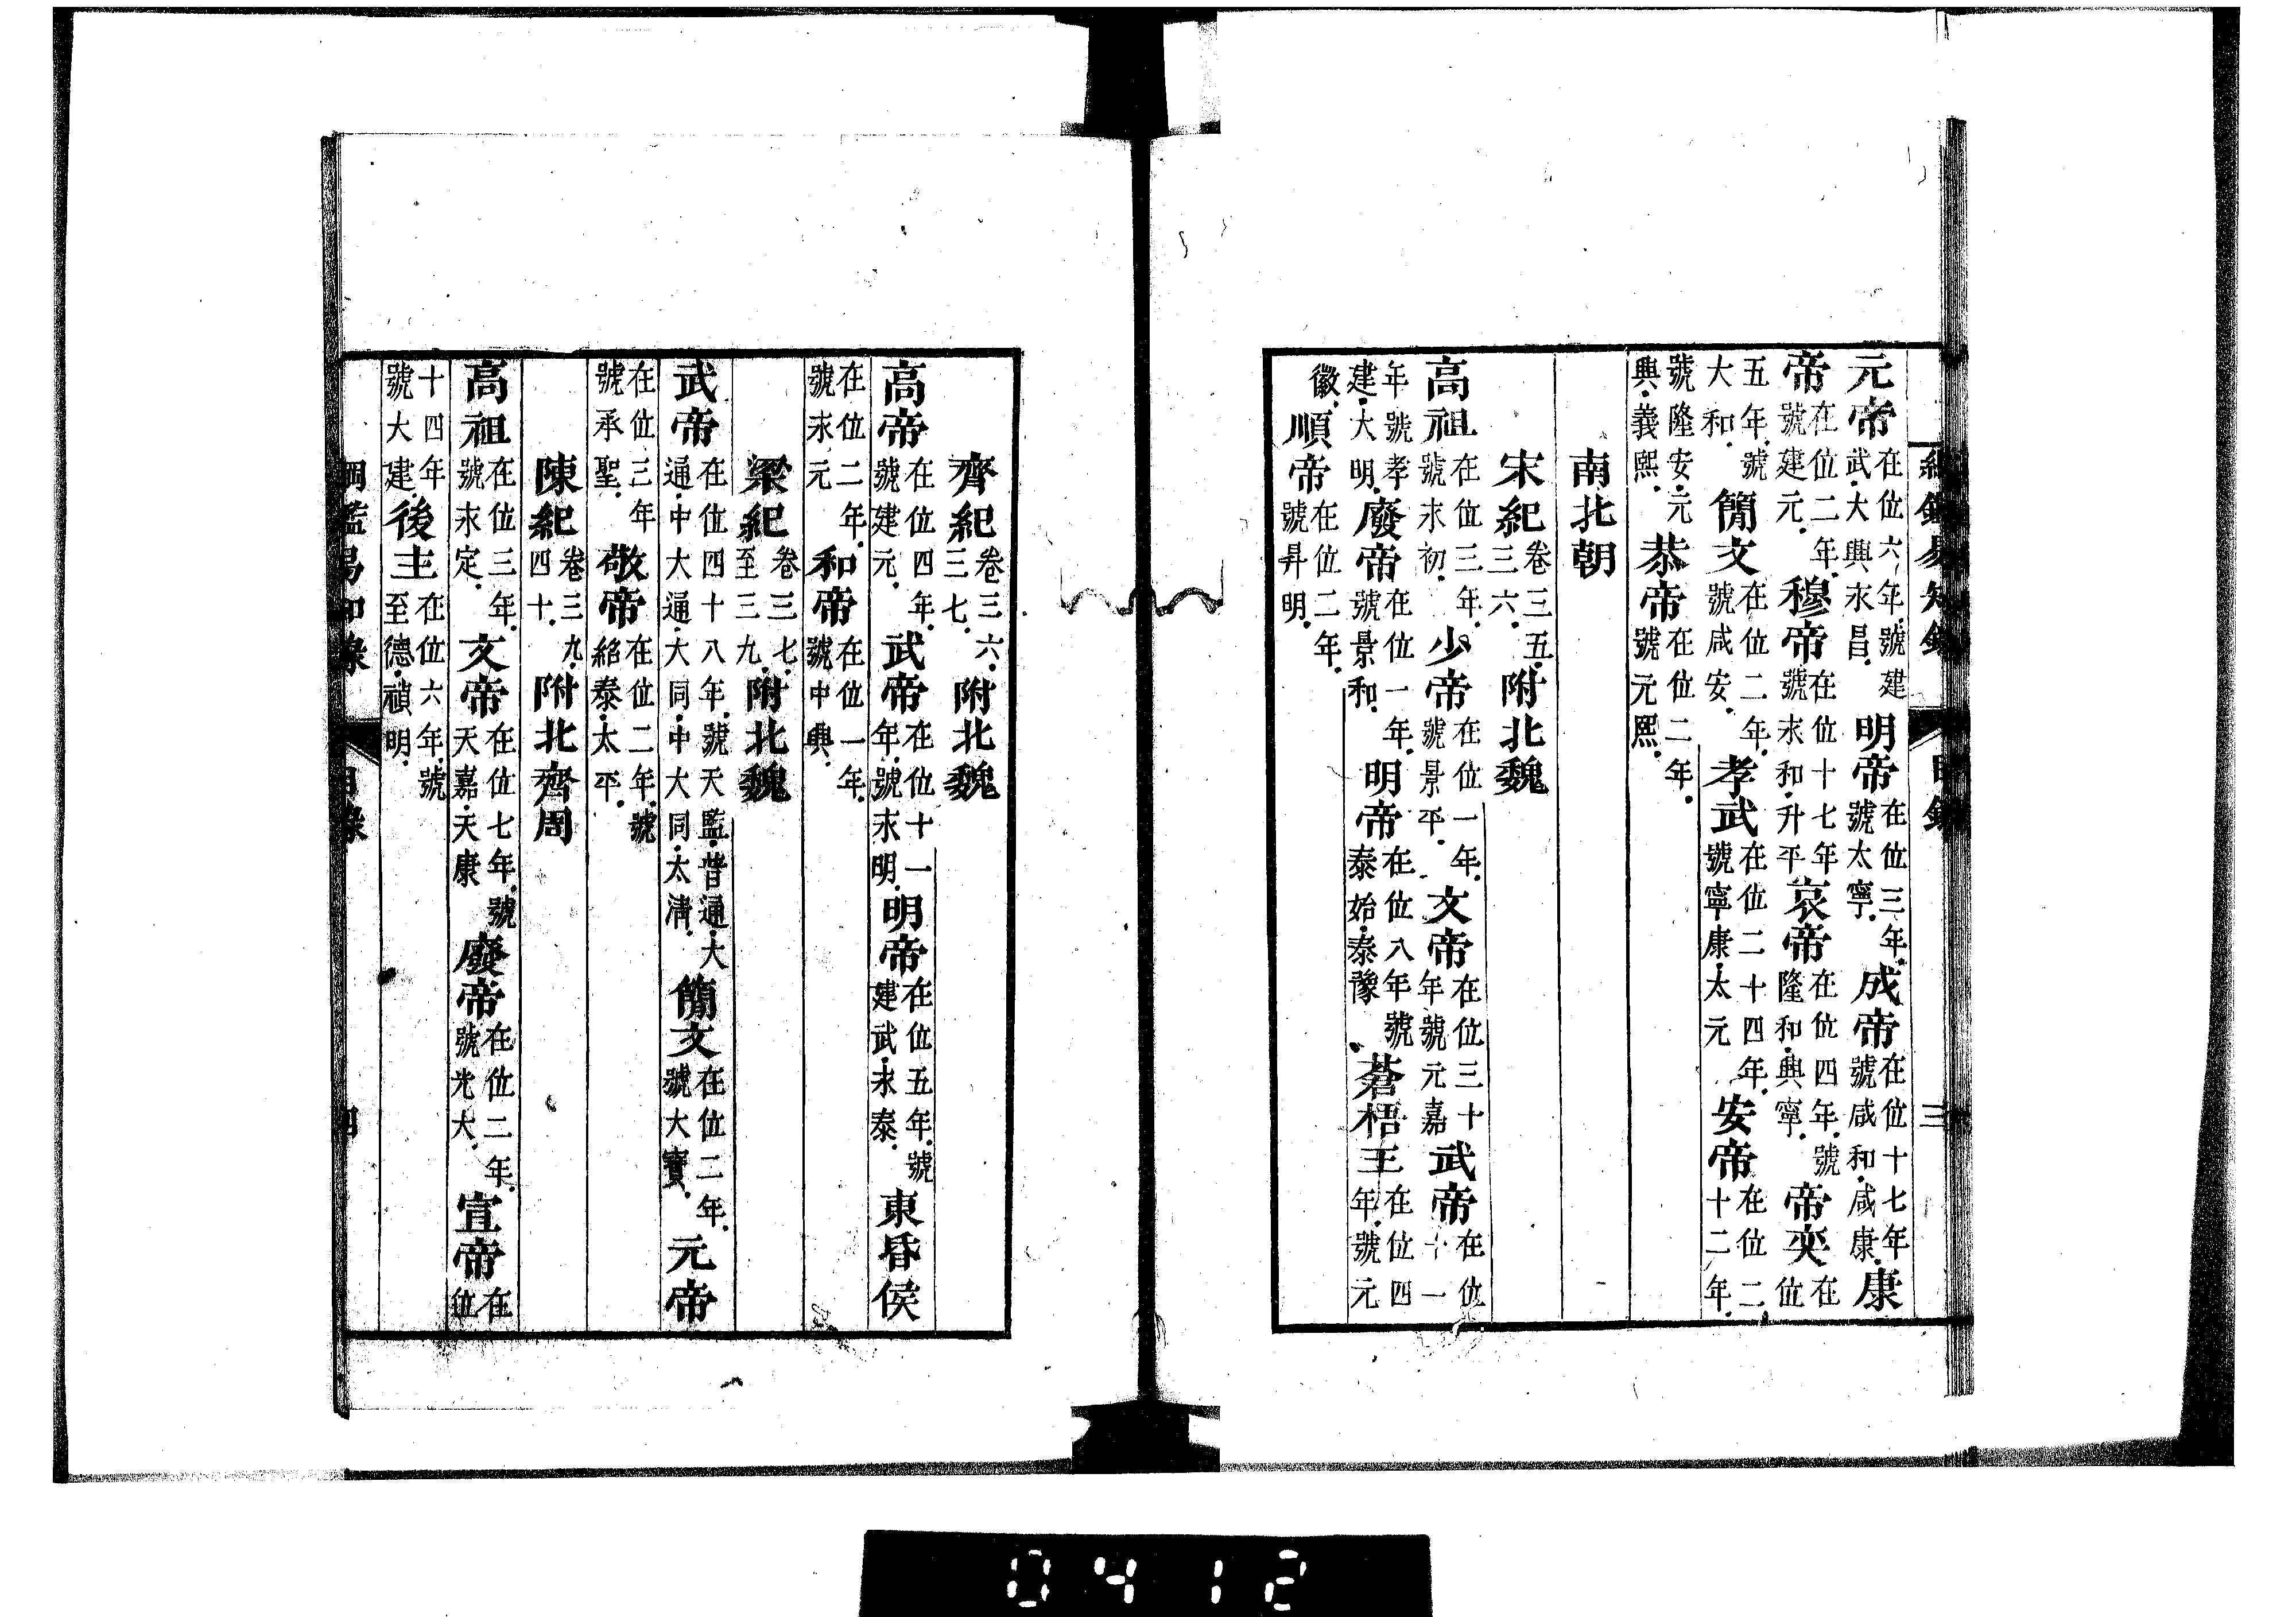 綱鑑易知錄 目錄 三
元帝在位六年.號建武.大興永昌. 明帝在位三年.號太寧. 成帝在位十七年號咸和.咸康.康
帝在位二年.號建元. 穆帝在位十七年號永和.升平哀帝在位四年.號隆和.興寧. 帝奕在位
五年.號大和. 簡文在位二年.號咸安. 孝武在位二十四年.號寧康.太元 安帝在位二十二年.
號隆安.元興.義熙. 恭帝在位二年.號元熙.
南北朝
宋紀卷三五.三六. 附北魏
高祖在位三年.號永初. 少帝在位一年.號景平. 文帝在位三十年號元嘉 武帝在位十一
年號孝建.大明.廢帝在位一年.號景和. 明帝在位八年號泰始.泰豫 蒼梧王在位四年.號元
徽.順帝在位二年.號昇明.
齊紀卷三六.三七. 附北魏
高帝在位四年.號建元. 武帝在位十一年.號永明.明帝在位五年.號建武.永泰. 東昏侯
在位二年.號永元 和帝在位一年.號中興.
梁紀卷三七.至三九.附北魏
武帝在位四十八年.號天監.普通.大通.中大通.大同.中大同.太清. 簡文在位二年.號大寶. 元帝
在位三年號承聖. 敬帝在位二年.號紹泰.太平.
陳紀卷三九.四十. 附北齊周
高祖在位三年.號永定. 文帝在位七年.號天嘉.天康 廢帝在位二年.號光大. 宣帝在位
十四年號大建.後主在位六年.號至德.禎明.
綱鑑易知錄 目錄 四